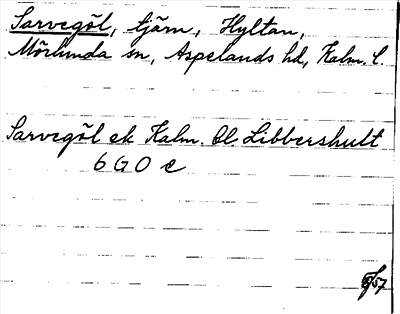 Sarvegöl, tjärn, Hyltan,
Mörlunda sn, Aspelands hd, Kalm. l.
Sarvegöl ek Kalm. bl Libbershult
6 G 0 c